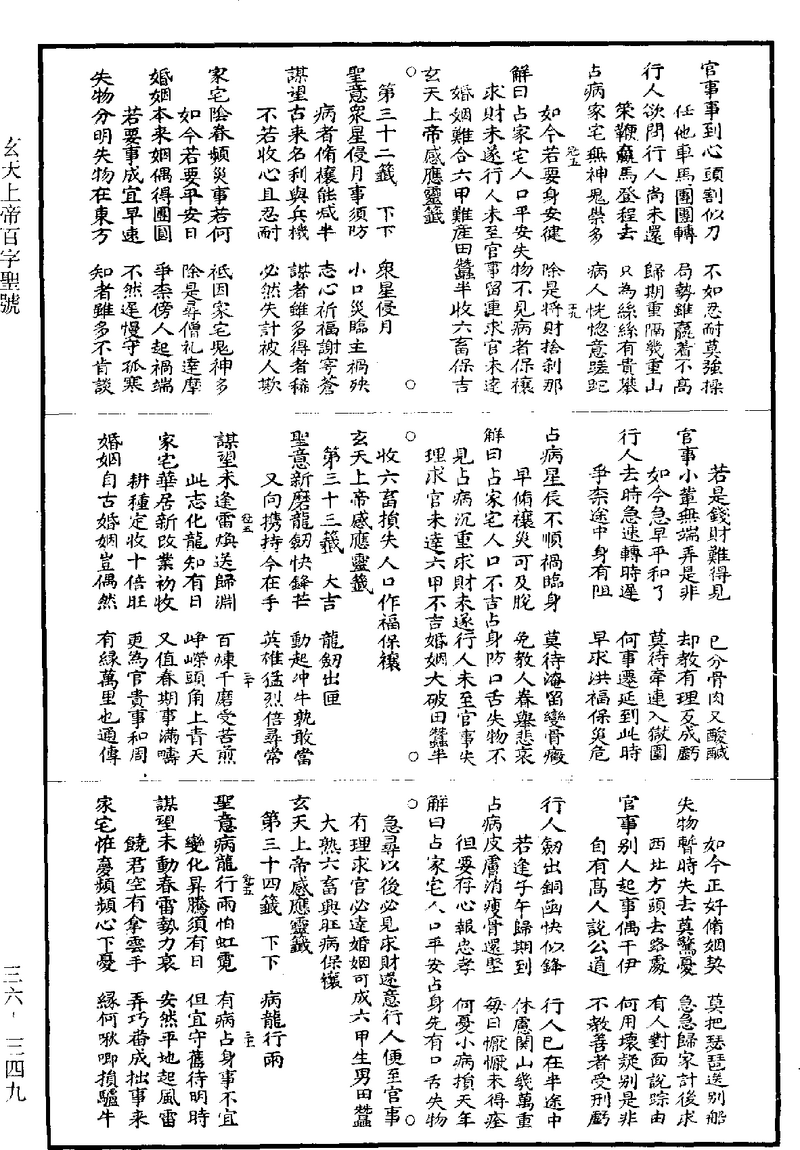 官事事到心頭割似刀　不如忍耐莫強操
任他車馬團團轉　局勢雖贏著不高
行人欲問行人尚未還　歸期重隔幾重山
策鞭羸馬登程去　只為絲絲有貴攀
占病家宅無神鬼祟多　病人恍惚意蹉跎
卷五　廿九
如今若要身安健　除是將財捨剎那
解曰占家宅人口平安失物不見病者保禳
求財未遂行人未至官事留連求官未達
婚姻難合六甲難產田蠶半收六畜保吉
玄天上帝感應靈籤
○　○
第三十二籤　下下　眾星侵月
聖意眾星侵月事須防　小口災臨主禍殃
病者脩禳能減半　志心祈福謝穹蒼
謀望古來名利與兵機　謀者雖多得者稀
不若收心且忍耐　必然失計被人欺
家宅陰眷頻災事若何　祇因家宅鬼神多
如今若要平安日　除是尋僧礼達摩
婚姻本來姻偶得團圓　爭柰傍人起禍端
若要事成宜早速　不然遲慢守孤寒
失物分明失物在東方　知者雖多不肯談
若是錢財難得見　已分骨肉又酸鹹
官事小輩無端弄是非　却教有理反成虧
如今急早平和了　莫待牽連入獄圍
行人去時急速轉時遲　何事遷延到此時
爭柰途中身有阻　早求洪福保災危
占病星辰不順禍臨身　莫待淹留變骨癥
早脩禳災可及脫　免教人眷舉悲哀
解曰占家宅人口不吉占身防口舌失物不
見占病沉重求財未遂行人未至官事失
理求官未達六甲不吉婚姻大破田蠶半
○　○
收六畜損失人口作福保禳
玄天上帝感應靈籤
第三十三籤　大吉　龍劒出匣
聖意新磨龍劒快鋒芒　動起冲牛孰敢當
又向携持今在手　英雄猛烈倍尋常
卷五　三十
謀望未逢雷煥送歸淵　百煉千磨受苦煎
此志化龍知有日　崢嶸頭角上青天
家宅華居新改業初收　又值春期事滿疇
耕種定收十倍旺　更為官貴事和周
婚姻自古婚姻豈偶然　有緣萬里也通傳
如今正好脩姻契　莫把琵琶送別船
失物暫時失去莫驚憂　急急歸家計後求
西北方頭去路處　有人對面說踪由
官事別人起事偶干伊　何用壞疑別是非
自有高人說公道　不教善者受刑虧
行人劒出銅函快似鋒　行人已在半途中
若逢子午歸期到　休慮関山幾萬重
占病皮膚消瘦骨還堅　每日懨懨未得痊
但要存心報忠孝　何憂小病損天年
解曰占家宅人口平安占身先有口舌失物
○　○
急尋以後必見求財遂意行人便至官事
有理求官必達婚姻可成六甲生男田蠶
大熟六畜興旺病保禳
玄天上帝感應靈籤
第三十四籤　下下　病龍行雨
卷五
聖意病龍行雨怕虹霓　有病占身事不宜
變化昇騰須有日　但宜守舊待明時
謀望未動春雷勢力衰　安然平地起風雷
饒君空有拿雲手　弄巧番成拙事來
家宅惟憂頻頻心下憂　緣何啾唧損驢牛
玄天上帝百字聖號
三六-三四九